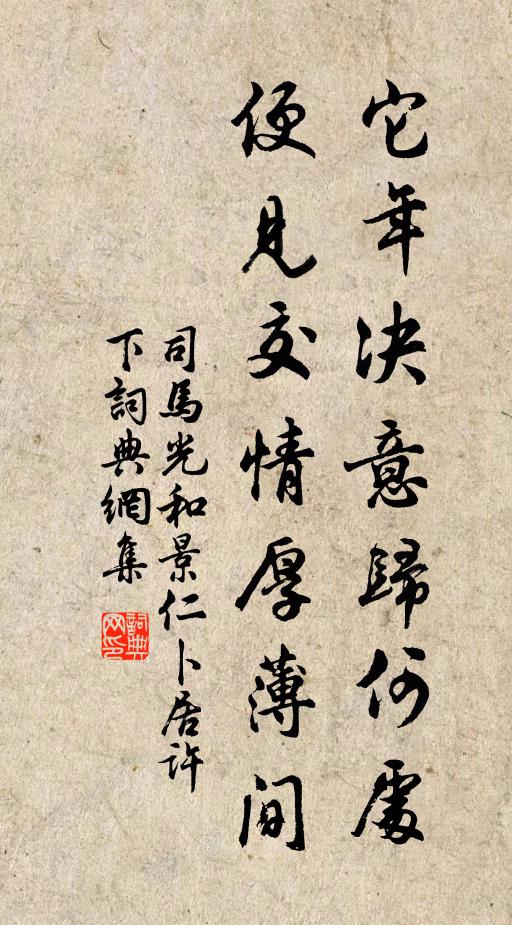 它年決意歸何處
便見交情厚薄間
司馬光和景仁卜居許
下詞典網集
詞典网印